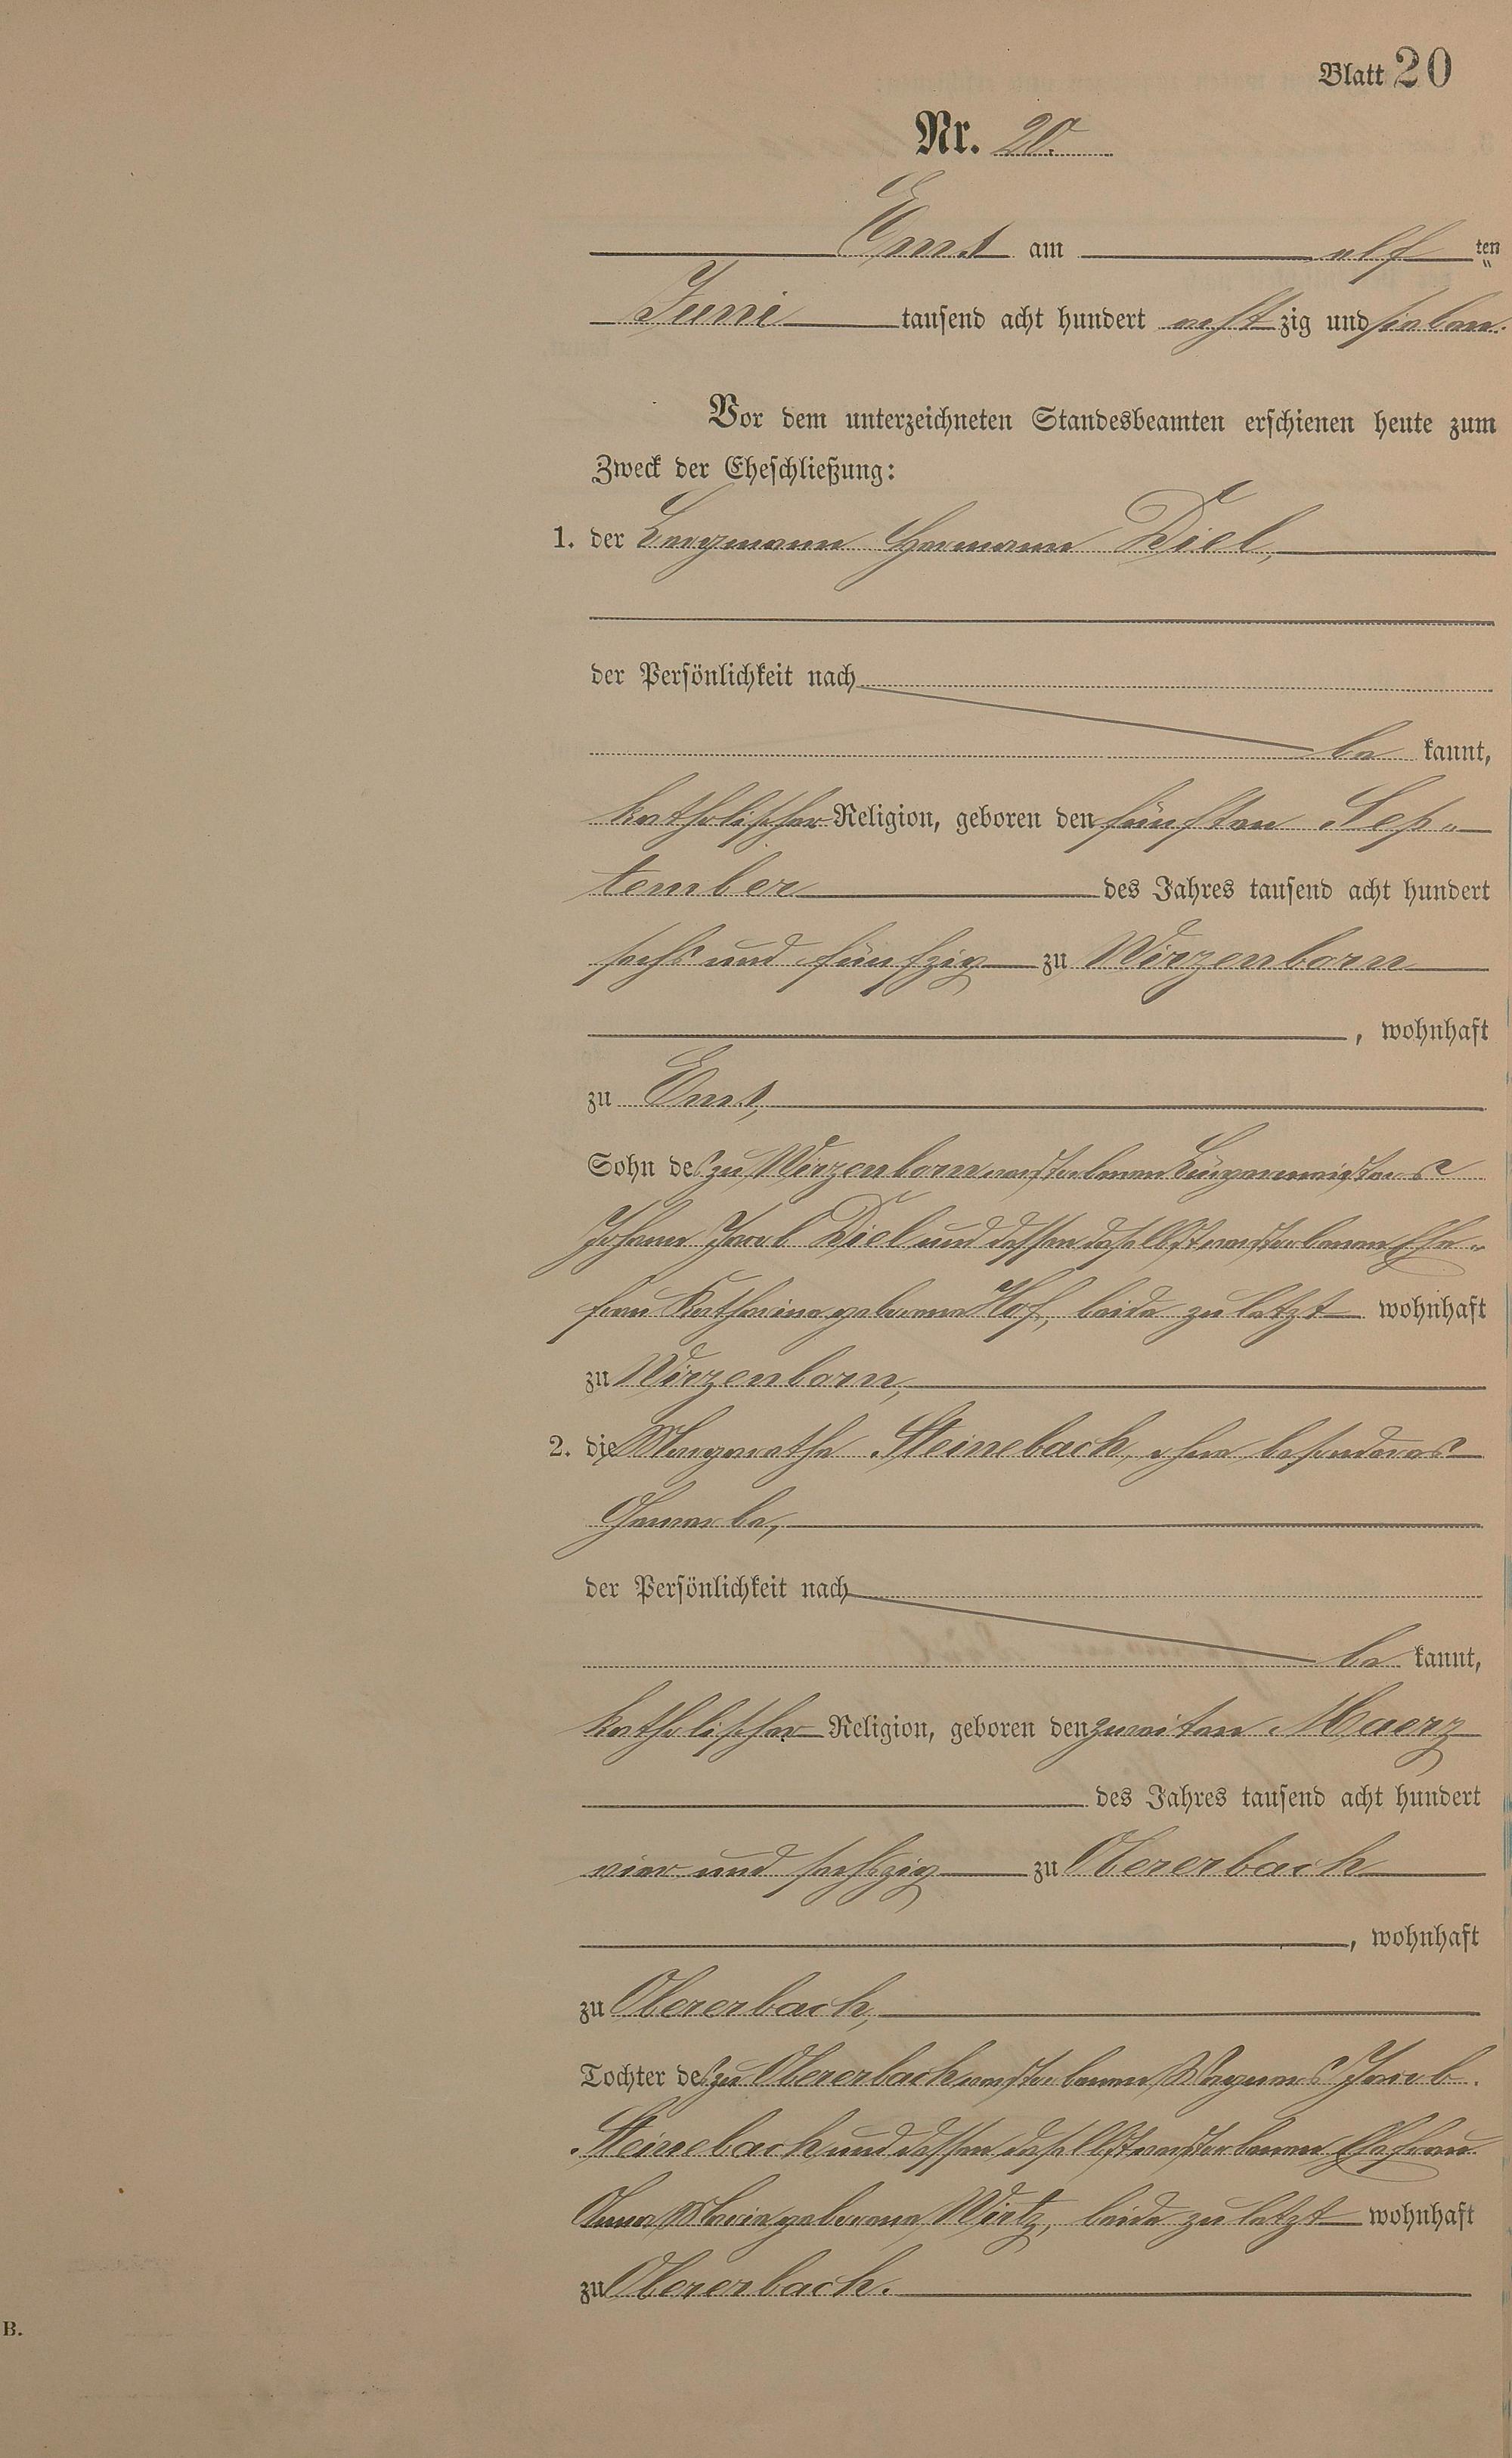 Blatt 20
Nr. 20.
Ems am elf ten
Juni tausend acht hundert acht zig und sieben.
Vor dem unterzeichneten Standesbeamten erschienen heute zum
Zweck der Eheschließung:
1. der Bergmann Hermann Diel,
der Persönlichkeit nach
be kannt,
katholischer Religion, geboren den fünften Sep-
tember des Jahres tausend acht hundert
sechs und fünfzig zu Wirzenborn
, wohnhaft
zu Ems,
Sohn des zu Wirzenborn verstorbenen Bürgermeisters
Johann Jacob Diel und dessen daselbst verstorbenen Ehe-
frau Katharina geborene Hof, beide zuletzt wohnhaft
zu Wirzenborn,
2. die Margarethe Steinebach, ohne besonderes
Gewerbe,
der Persönlichkeit nach
be kannt,
katholischer Religion, geboren den zweiten Maerz
des Jahres tausend acht hundert
vier und sechszig zu Obererbach
, wohnhaft
zu Obererbach,
Tochter des zu Obererbach verstorbenen Wagners Jacob
Steinebach und dessen daselbst verstorbenen Ehefrau
Anna Maria geborene Wirtz, beide zuletzt wohnhaft
zu Obererbach.
B.